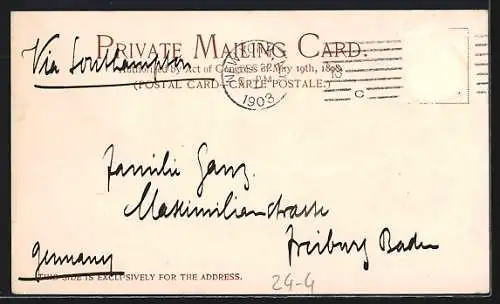 Via Southampton
PRIVATE MAILING CARD.
Authorized by Act of Congress of May 19th, 1898
(POSTAL CARD—CARTE POSTALE.)
1903
C
Familie Ganz.
Maximilianstrasse
Freiburg Baden
Germany
THIS SIDE IS EXCLUSIVELY FOR THE ADDRESS.
24-4